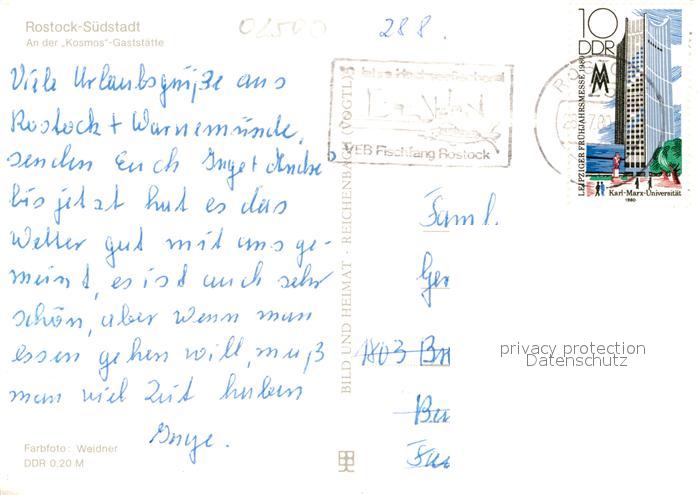 Rostock-Südstadt
An der „Kosmos"-Gaststätte
02500
288.
Viele Urlaubsgrüße aus
Rostock + Warnemünde,
senden Euch Inge + Andre
bis jetzt hat es das
Wetter gut mit uns ge-
meint, es ist auch sehr
schön, aber wenn man
essen gehen will, muß
man viel Zeit haben
Inge.
Farbfoto: Weidner
DDR 0,20 M
BILD UND HEIMAT · REICHENBACH (VOGTL)
VEB Fischfang Rostock
10
DDR
LEIPZIGER FRÜHJAHRSMESSE 1980
Karl-Marx-Universität
1980
Faml.
Ger
1803 Bn
privacy protection
Datenschutz